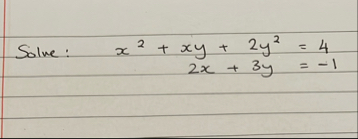 Solve : x² + xy + 2y² = 4
2x + 3y = -1